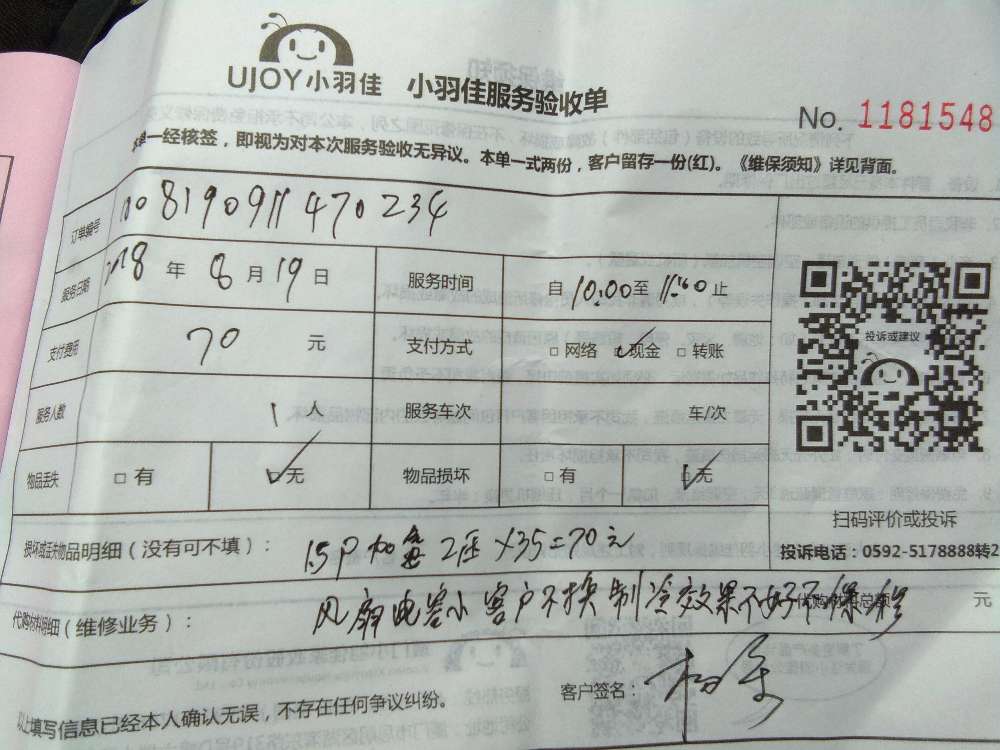 UJOY小羽佳 小羽佳服务验收单
No. 1181548
本单一经核签，即视为对本次服务验收无异议。本单一式两份，客户留存一份(红)。《维保须知》详见背面。
订单编号 1008190911470234
服务日期 2018 年 8 月 19 日 服务时间 自 10:00 至 11:40 止
支付费用 70 元 支付方式 □网络 ☑现金 □转账
服务人数 1 人 服务车次 车/次
物品丢失 □有 ☑无 物品损坏 □有 ☑无
投诉或建议
扫码评价或投诉
投诉电话：0592-5178888转2
损坏或丢失物品明细（没有可不填）： 1.5P 加 2压×35=70元
代购材料明细（维修业务）： 风扇电容小客户不换制冷效果不好不保修
代购材料总额 元
以上填写信息已经本人确认无误，不存在任何争议纠纷。
客户签名：